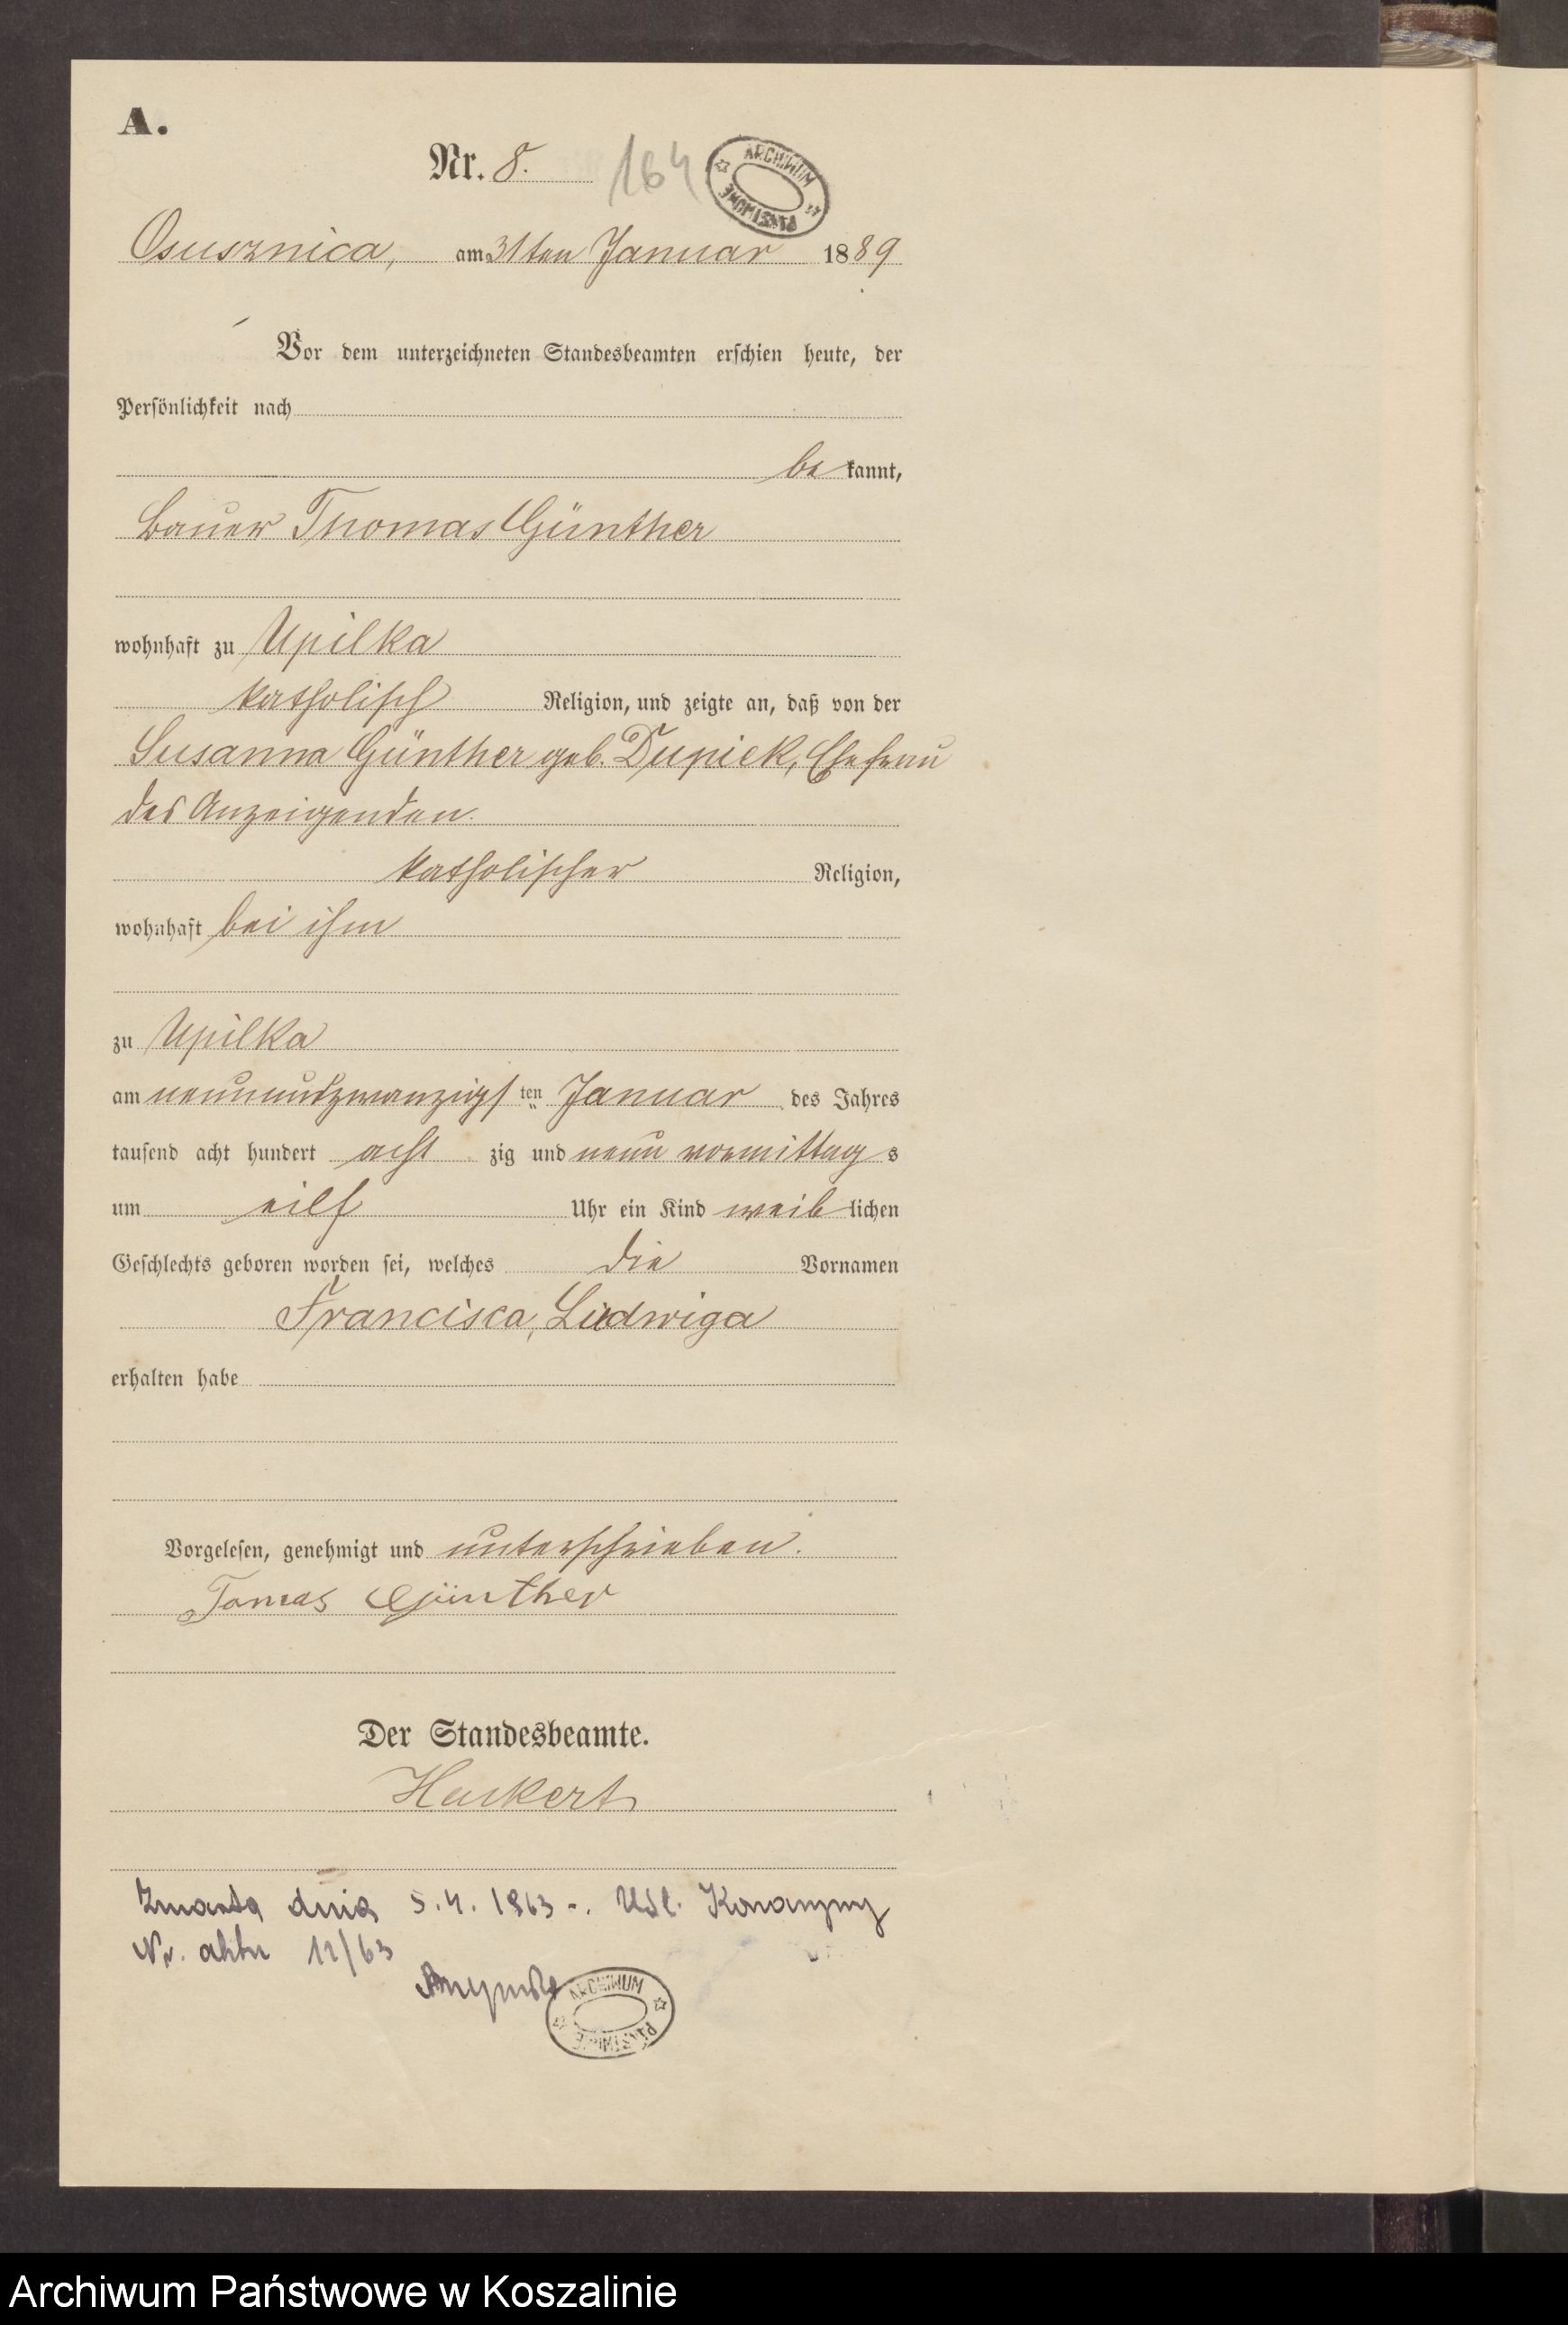 A.
Nr. 8. 164
ARCHIWUM PAŃSTWOWE
Osusznica, am 31ten Januar 1889
Vor dem unterzeichneten Standesbeamten erschien heute, der
Persönlichkeit nach
be kannt,
Bauer Thomas Günther
wohnhaft zu Upilka
katholisch Religion, und zeigte an, daß von der
Susanna Günther geb. Dupiek, Ehefrau
des Anzeigenden.
katholischer Religion,
wohnhaft bei ihm
zu Upilka
am neunundzwanzigsten Januar des Jahres
tausend acht hundert acht zig und neun vormittag s
um eilf Uhr ein Kind weib lichen
Geschlechts geboren worden sei, welches die Vornamen
Francisca, Ludwiga
erhalten habe
Vorgelesen, genehmigt und unterschrieben.
Tomas Günther
Der Standesbeamte.
Zmarła dnia 5.4.1963 -. USC.
Nr. aktu 12/63
ARCHIWUM PAŃSTWOWE
Archiwum Państwowe w Koszalinie